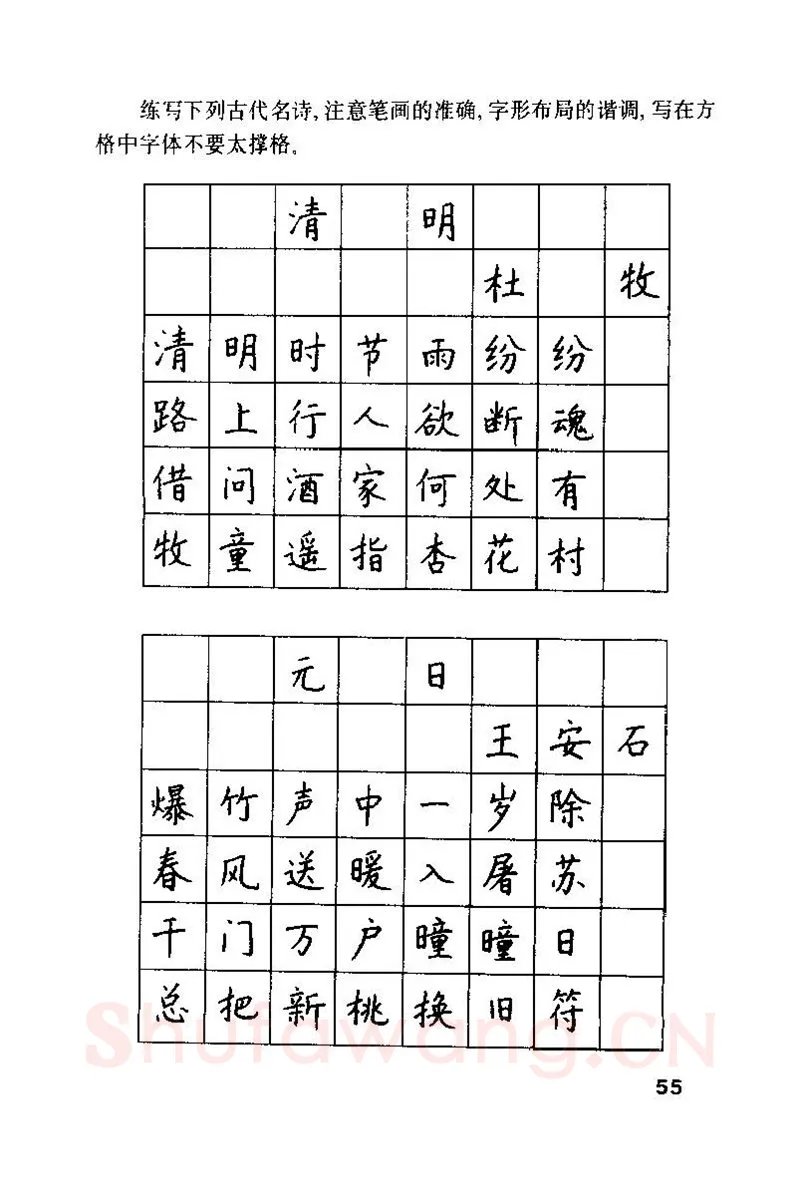 练写下列古代名诗,注意笔画的准确,字形布局的谐调,写在方
格中字体不要太撑格。
清明
杜牧
清明时节雨纷纷
路上行人欲断魂
借问酒家何处有
牧童遥指杏花村
元日
王安石
爆竹声中一岁除
春风送暖入屠苏
千门万户曈曈日
总把新桃换旧符
Shufawang.CN
55